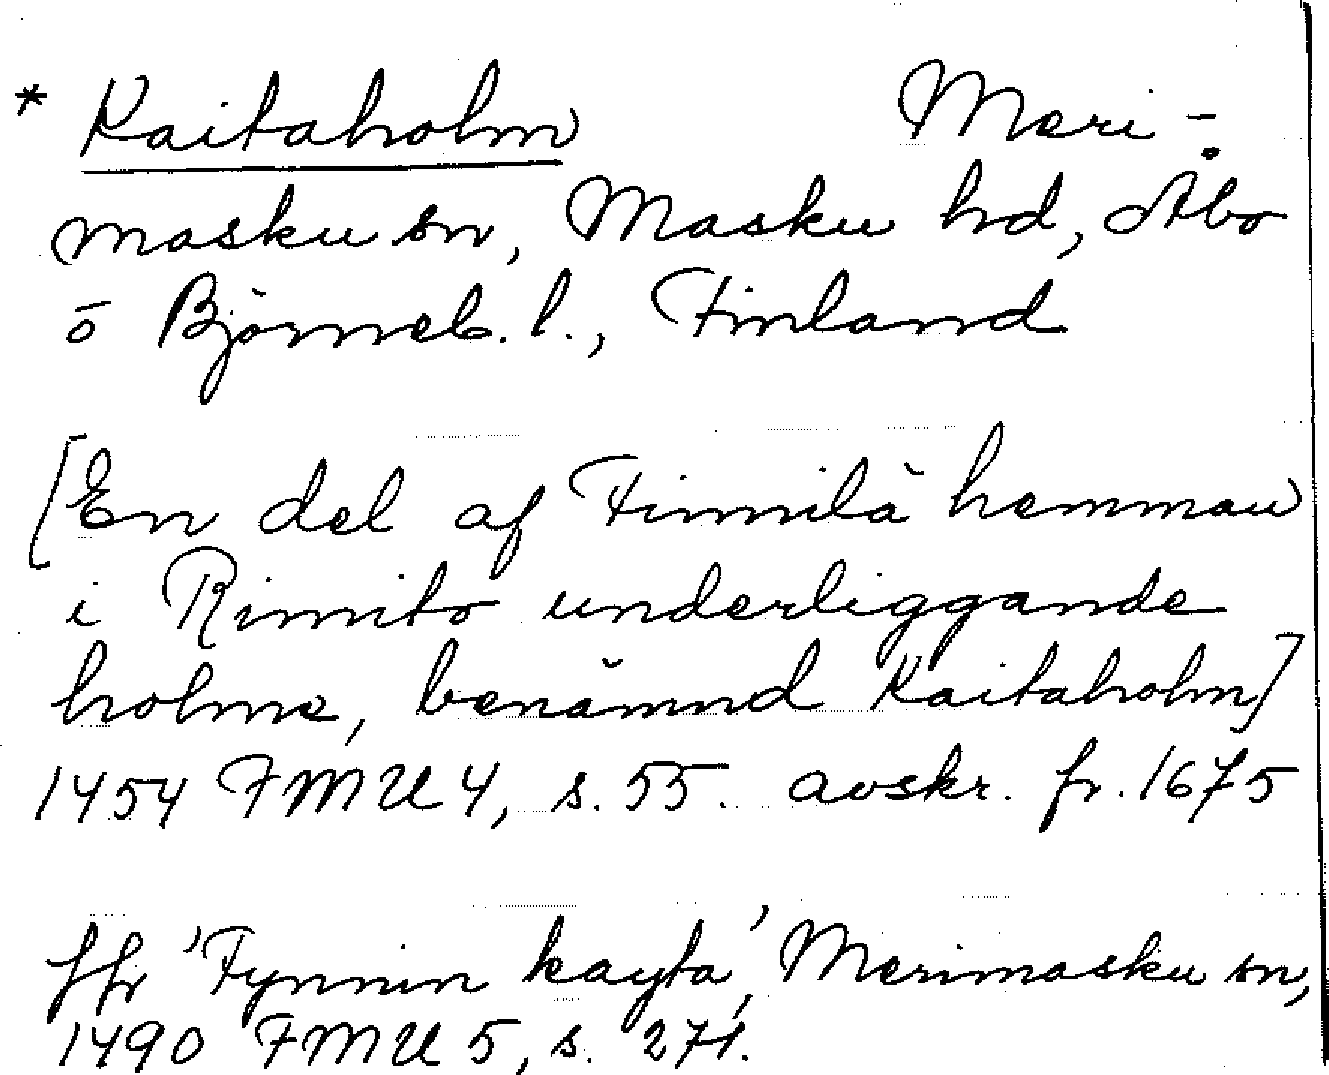 * Kaitaholm Meri-
masku sn, Masku hd, Åbo
o Björneb. l., Finland
[En del af Finnilä hemman
i Rimito underliggande
holme, benämnd Kaitaholm]
1454 FMU 4, s. 55. avskr. fr. 1675
jfr 'Fynnin kayta', Merimasku sn,
1490 FMU 5, s. 271.